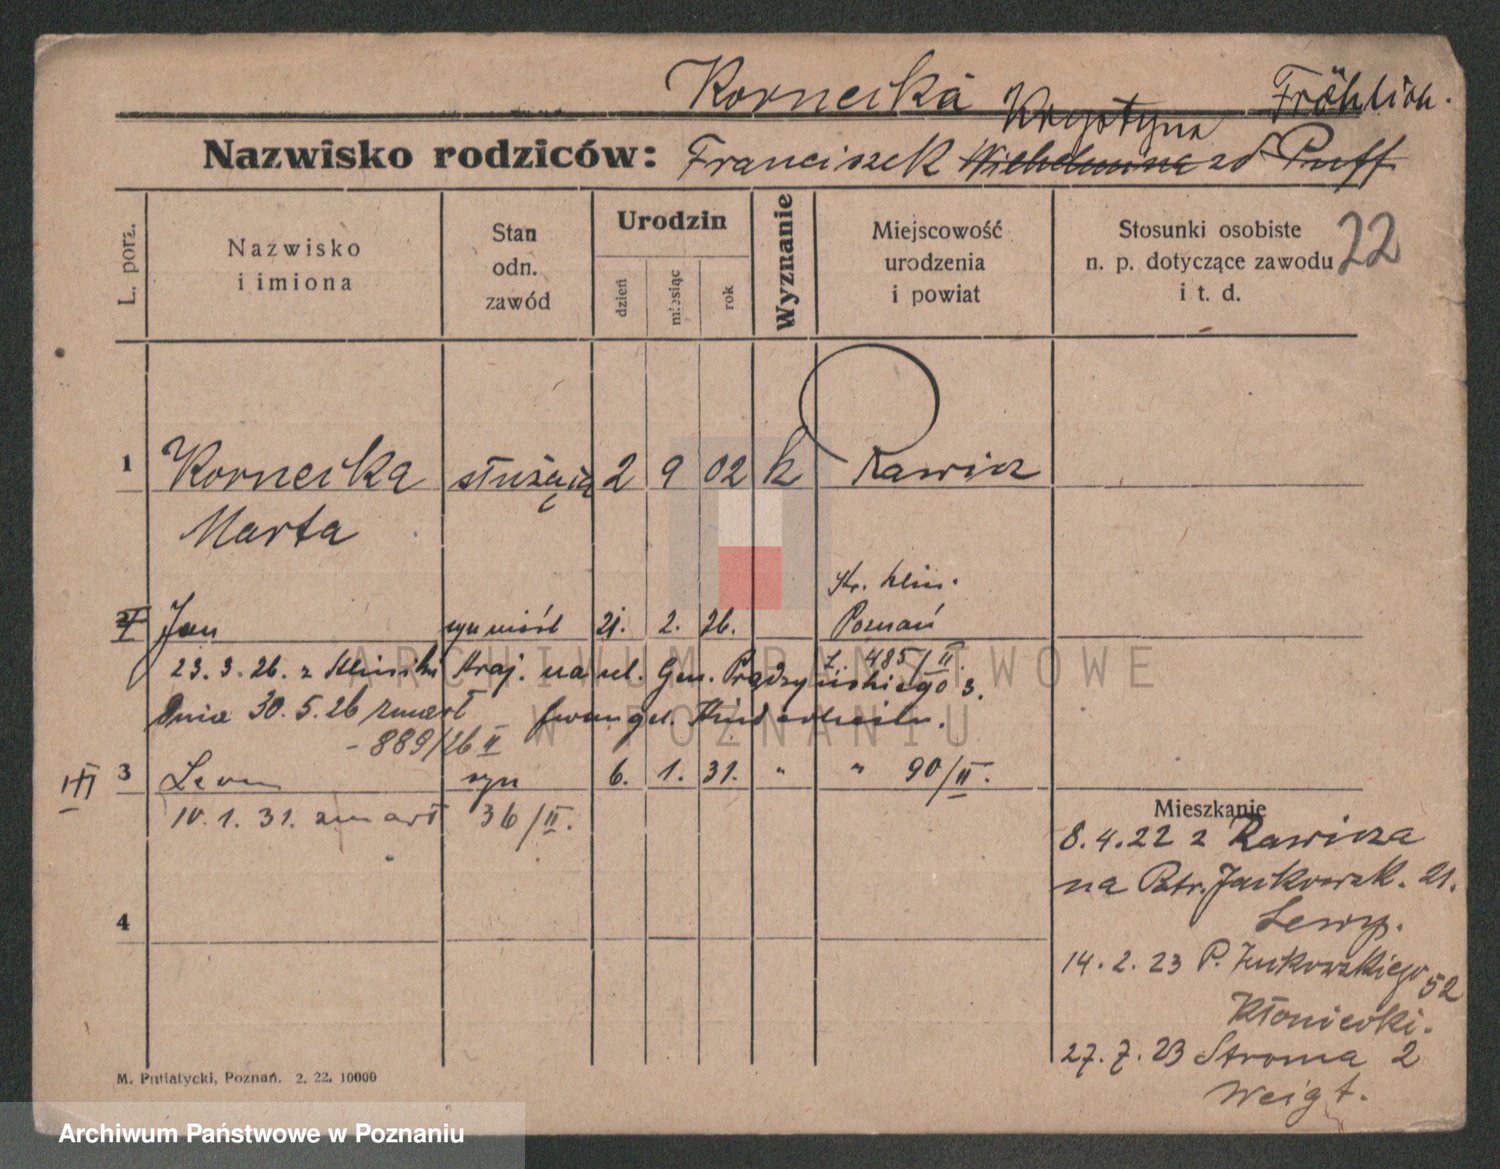 Kornecka
Krystyna
Fröhlich.
Nazwisko rodziców: Franciszek Wilhelmina zd Puff
L. porz.
Nazwisko
i imiona
Stan
odn.
zawód
Urodzin
dzień
miesiąc
rok
Wyznanie
Miejscowość
urodzenia
i powiat
Stosunki osobiste
n. p. dotyczące zawodu
i t. d.
22
1 Kornecka służąca 2 9 02 k Rawicz
Marta
Jan syn 21. 2. 26. Poznań
23.3.26. z Kliniki Kraj. na ul. Gen. Prądzyńskiego 3.
L. 485/II.
Dnia 30.5.26 zmarł
- 889/26 II
3 Leon syn 6. 1. 31. " " 90/II.
10.1.31. zmarł 36/II.
4
Mieszkanie
8.4.22 z Rawicza
na Ptr. Jackowsk. 21.
14.2.23 P. Jackowskiego 52
27.7.23 Stroma 2
Weigt.
M. Putiatycki, Poznań. 2. 22. 10000
ARCHIWUM PAŃSTWOWE
W POZNANIU
Archiwum Państwowe w Poznaniu